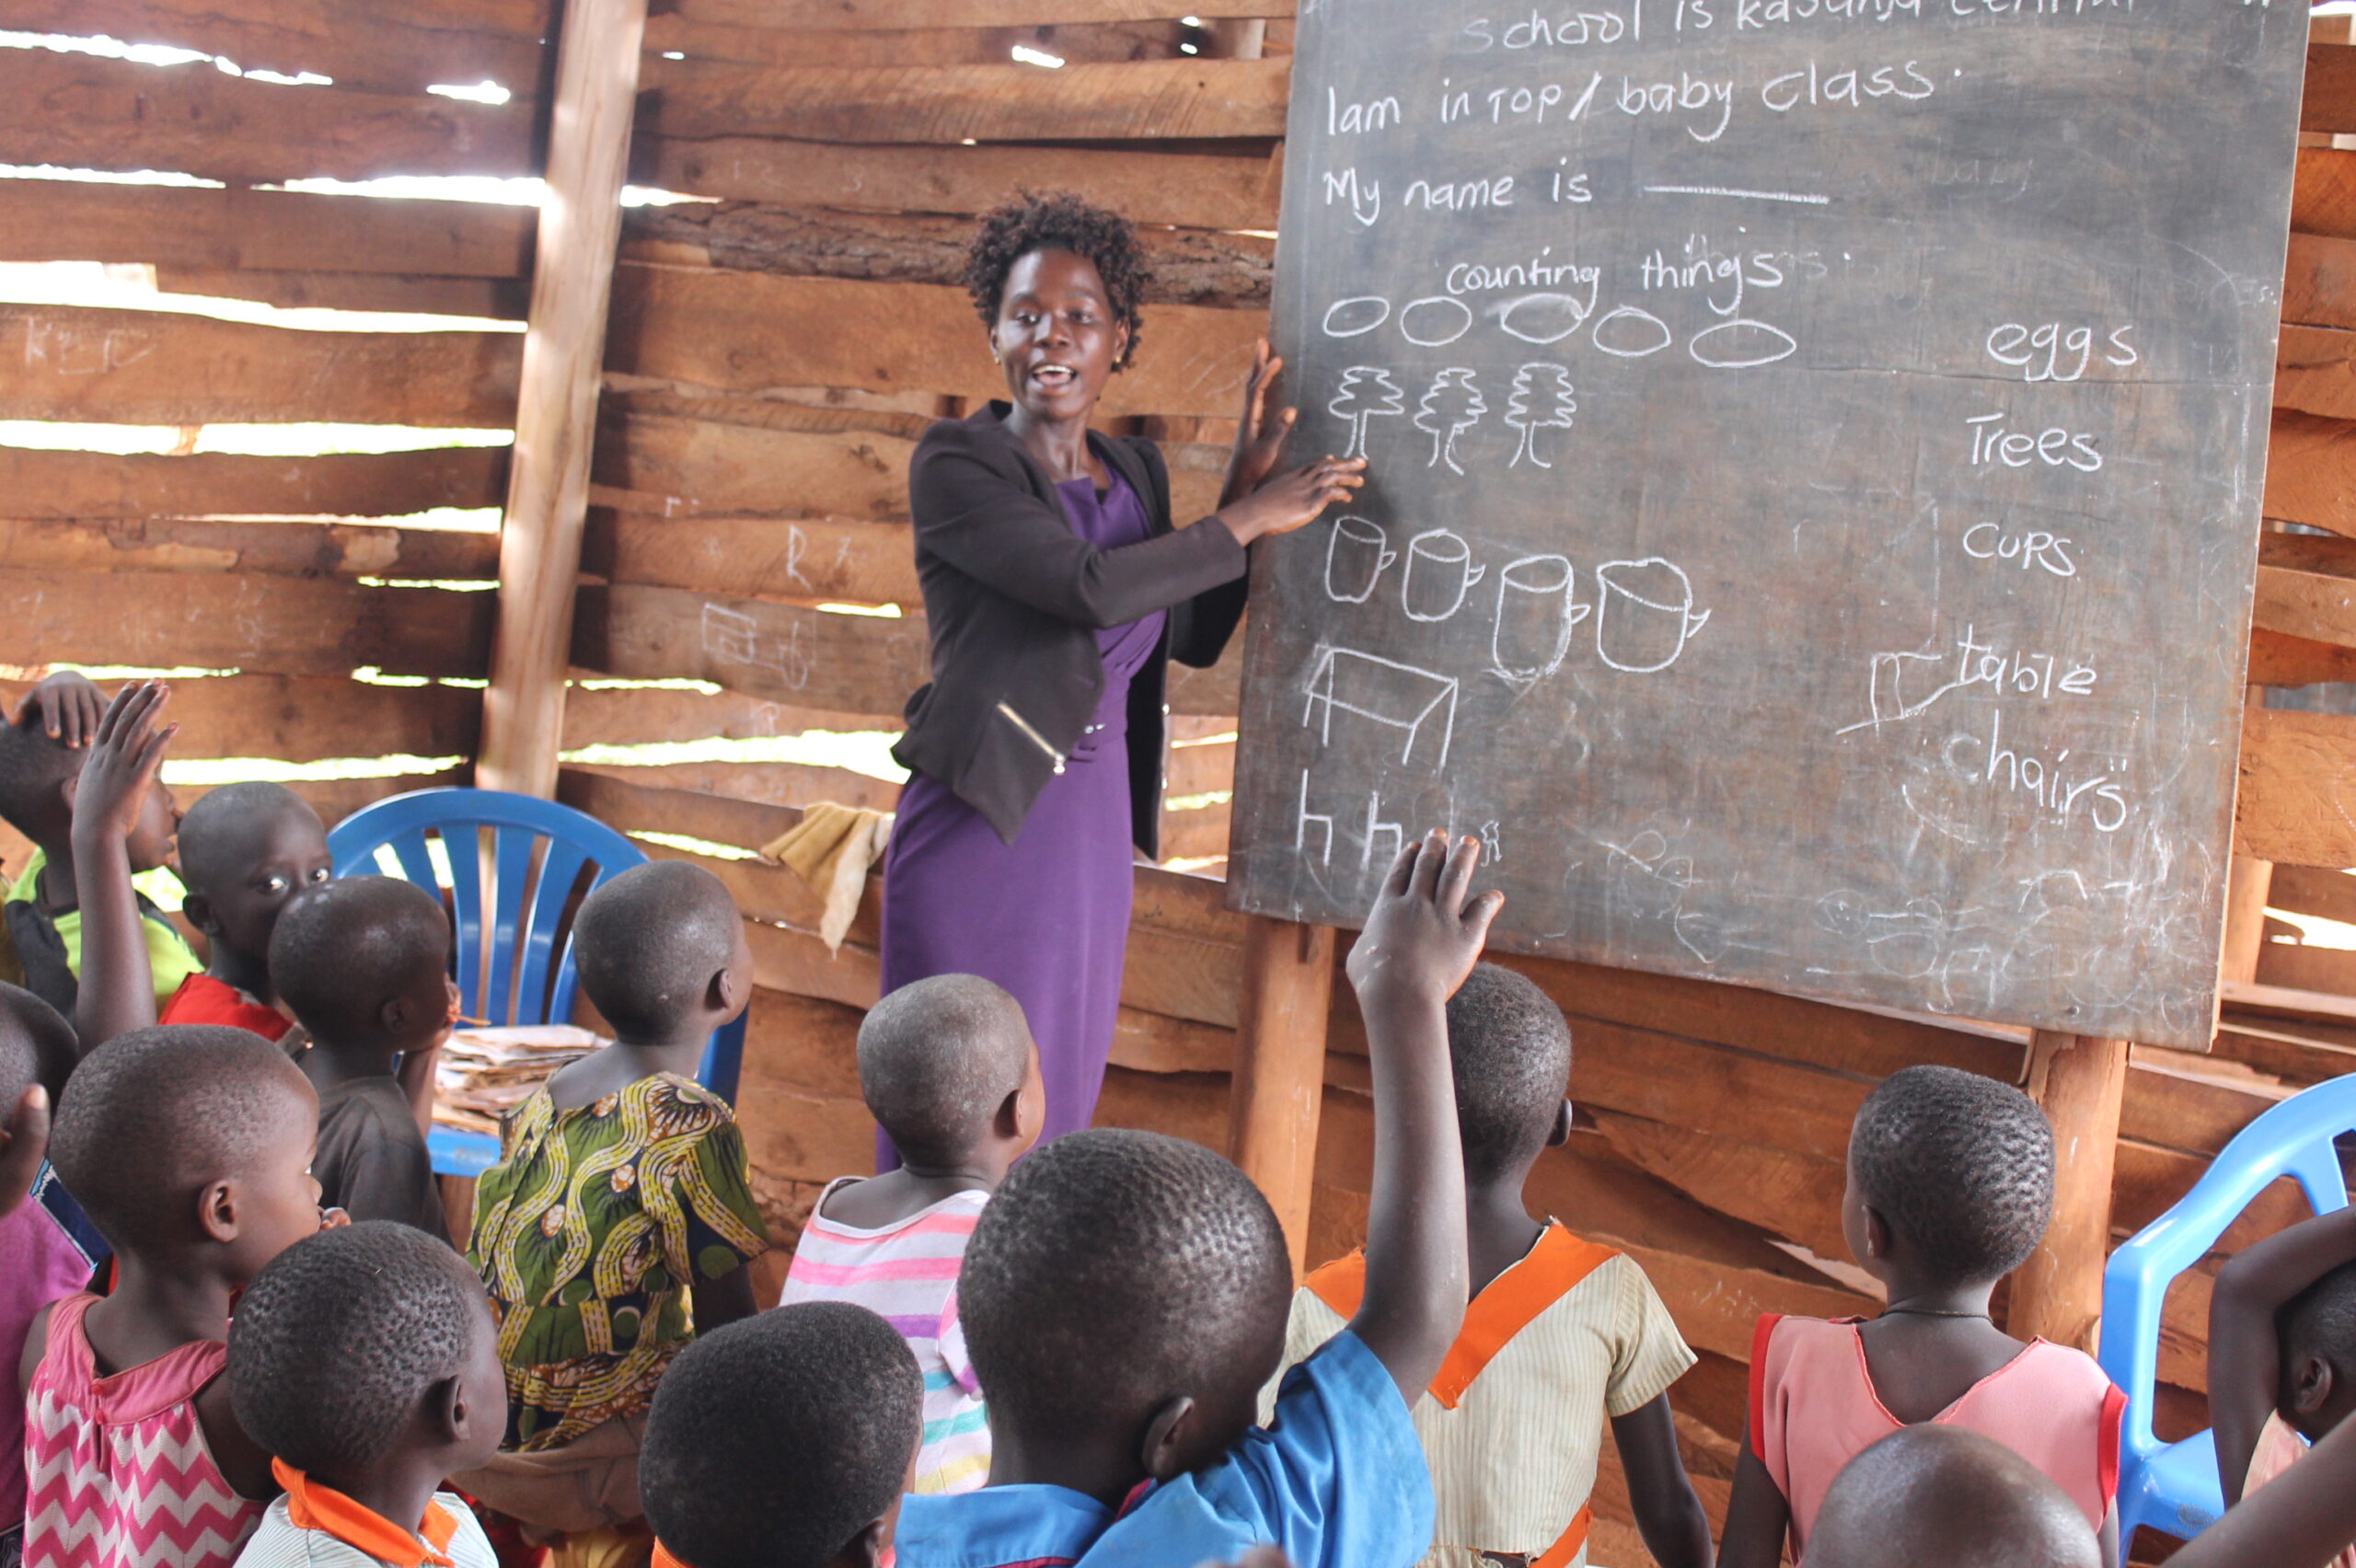 school is kasanja central
Iam in TOP/baby class.
My name is
counting things
eggs
Trees
cups
table
chairs